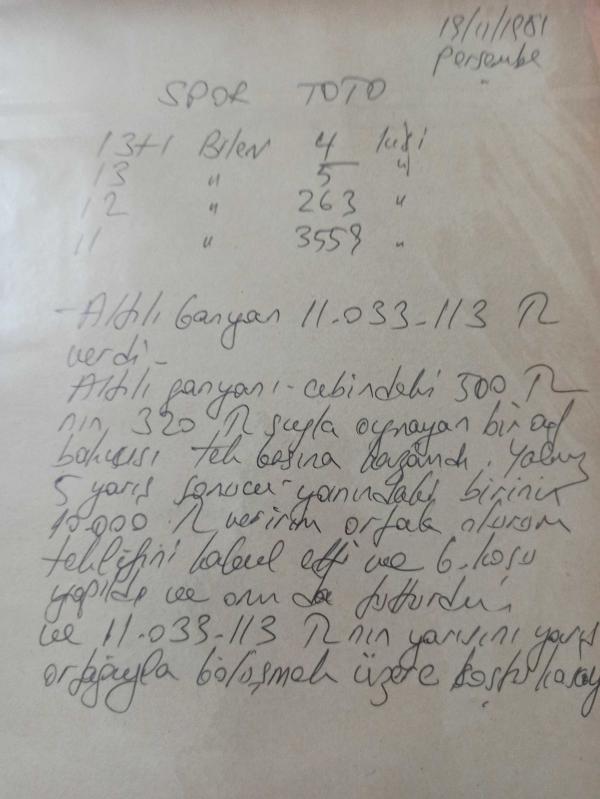 19/11/1981
Perşembe
SPOR TOTO
13+1 Bilen 4 kişi
13 " 5 "
12 " 263 "
11 " 3559 "
-Altılı Ganyan 11.033.113 TL
verdi-
Altılı ganyanı-cebindeki 500 TL
nın 320 TL sıyla oynayan bir at
bakıcısı tek başına kazandı. Yalnız
5 yarış sonucu yanındaki birinin
10.000 TL veririm ortak olurum
teklifini kabul etti ve 6. koşu
yapıldı ve onu da tutturdu,
ve 11.033.113 TL nın yarısını yarış
ortağıyla bölüşmek üzere koştu